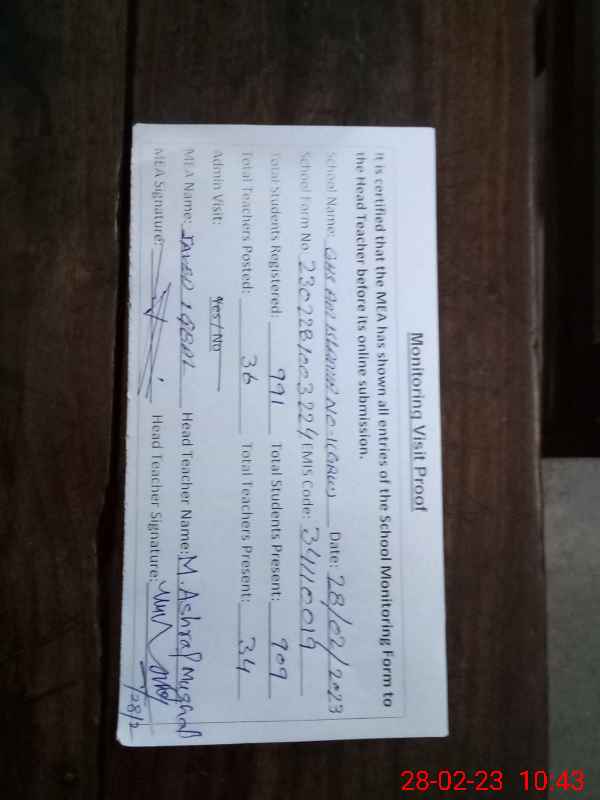 Monitoring Visit Proof
It is certified that the MEA has shown all entries of the School Monitoring Form to
the Head Teacher before its online submission.
School Name: GHS NO-1 Date: 28/02/2023
School Form No 2302281003224 EMIS Code: 34110019
Total Students Registered: 991 Total Students Present: 909
Total Teachers Posted: 36 Total Teachers Present: 34
Admin Visit: Yes / No
MEA Name: JAVED IQBAL Head Teacher Name: M. Ashraf Mughal
MEA Signature: Head Teacher Signature:
28/2
28-02-23 10:43